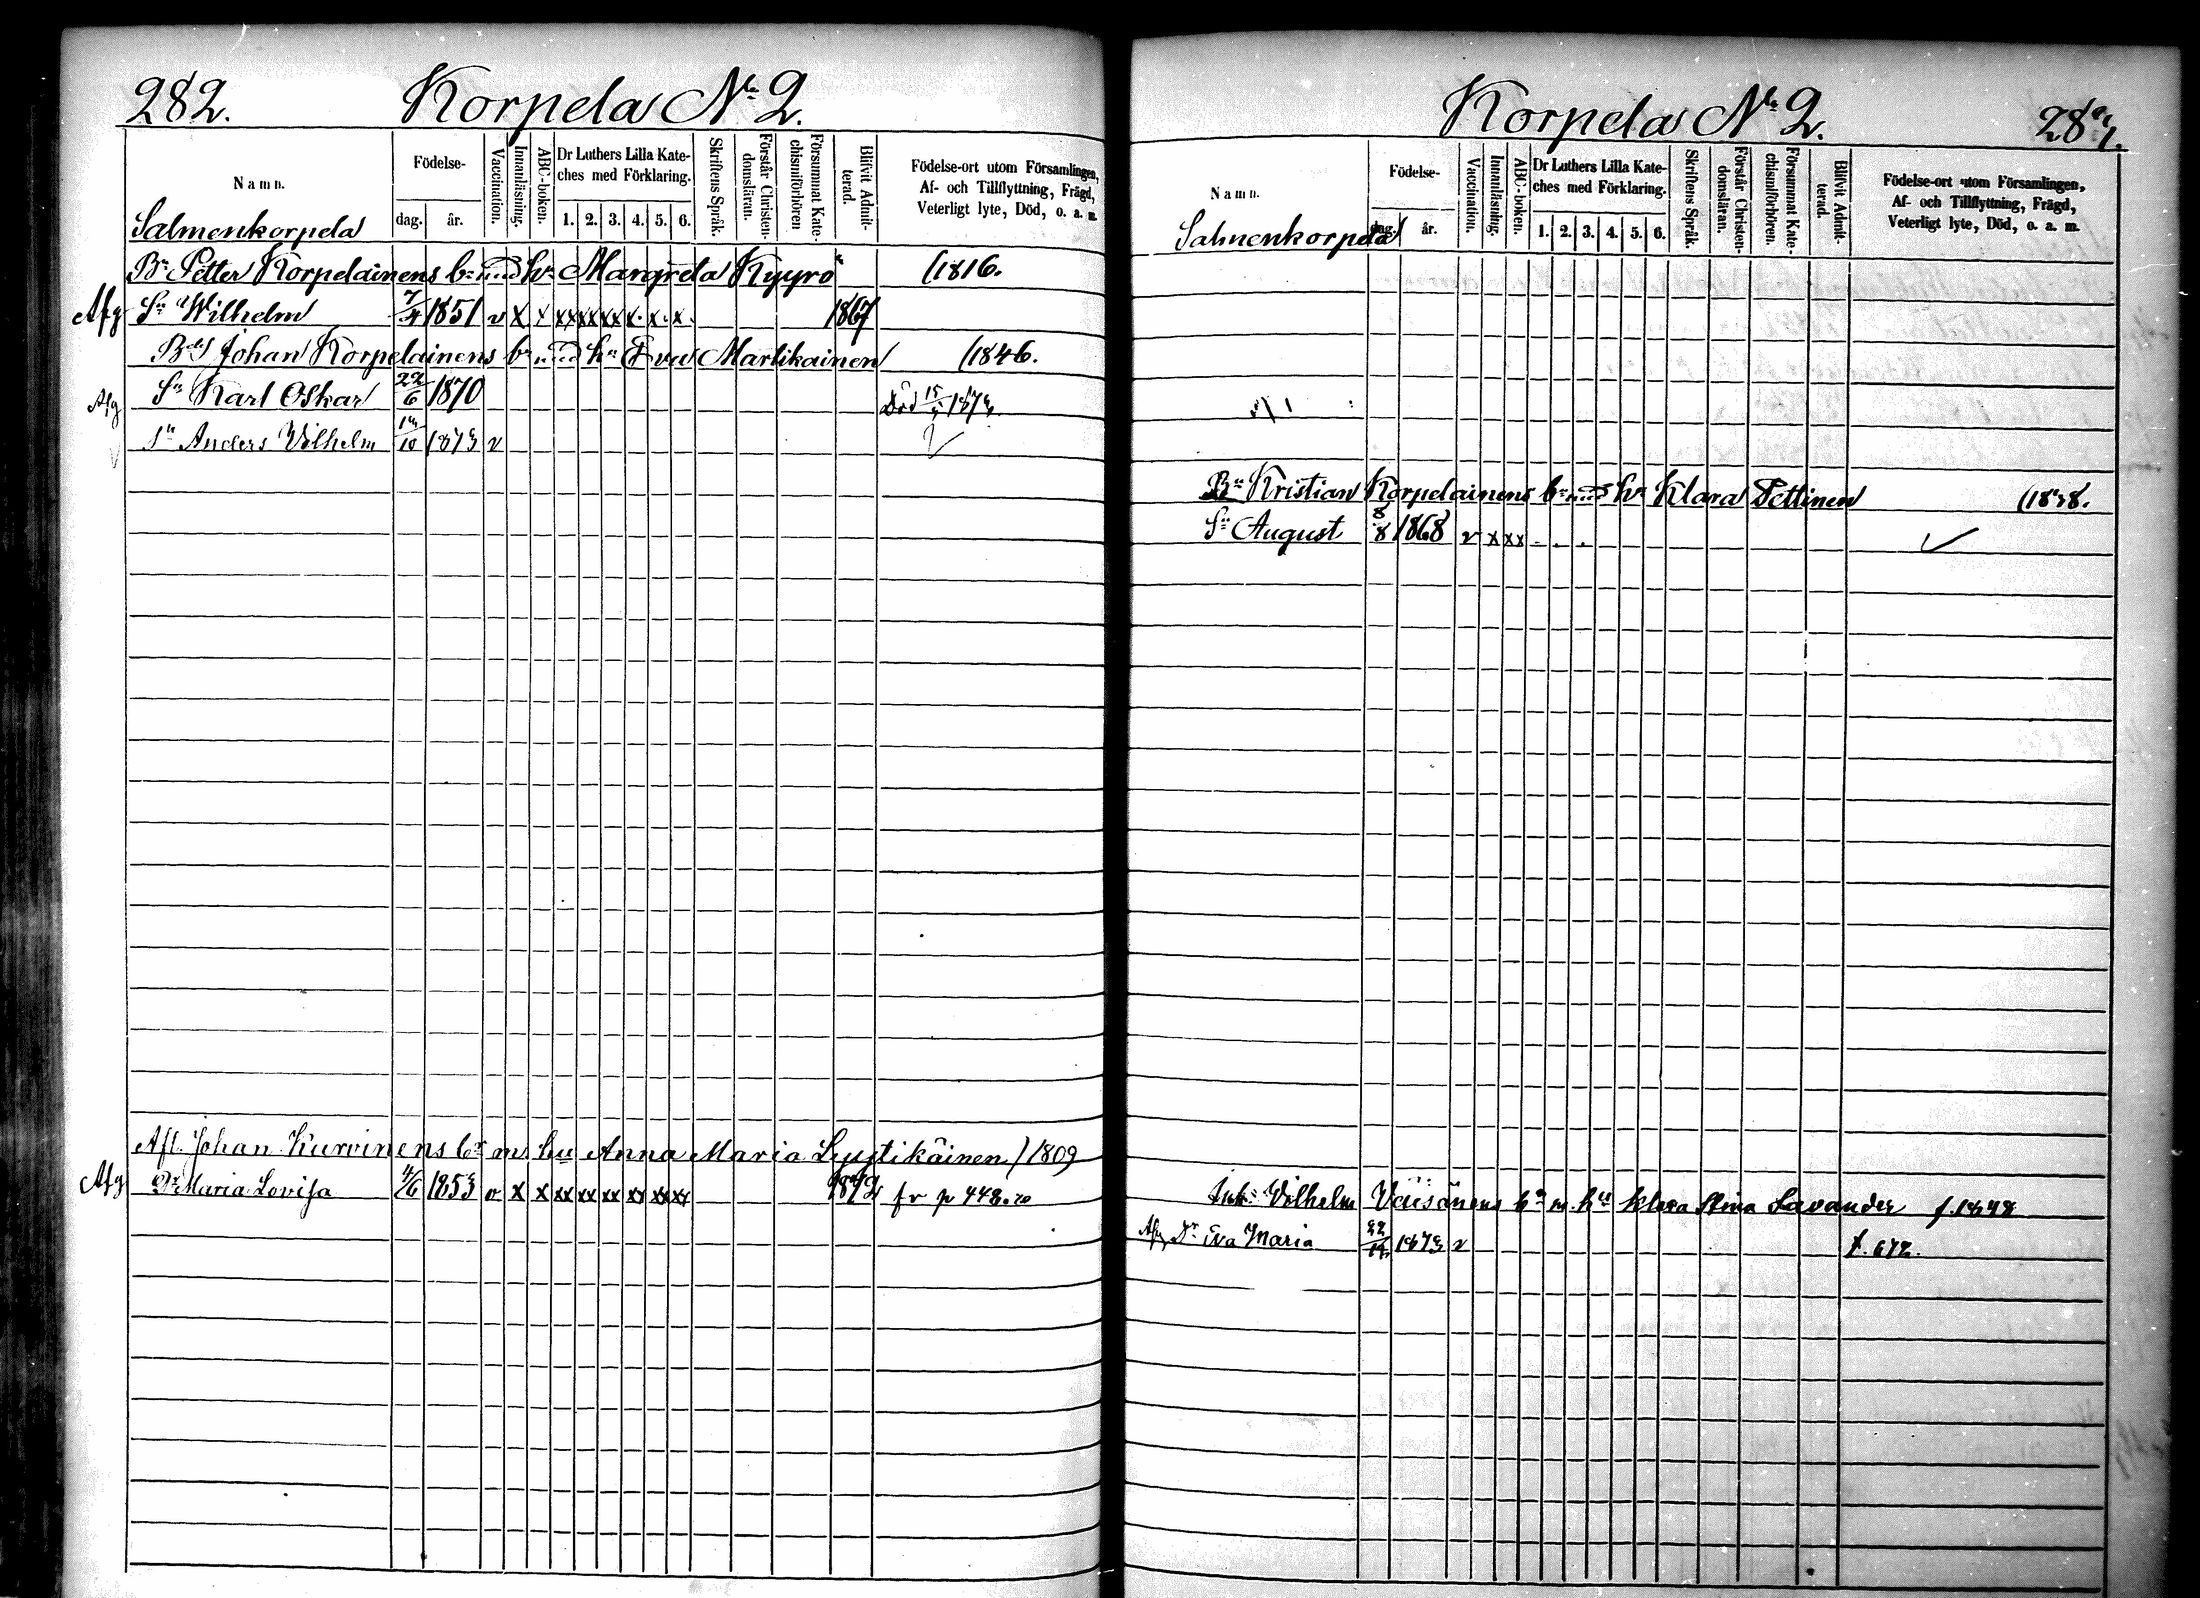 282. Korpela No 2.
Namn.
Födelse-
dag. år.
Vaccination.
Innanläsning.
ABC-boken.
Dr Luthers Lilla Kate-
ches med Förklaring.
1. 2. 3. 4. 5. 6.
Skriftens Språk.
Förstår Christen-
domsläran.
Försummat Kate-
chismiförhören
Blifvit Admit-
terad.
Födelse-ort utom Församlingen,
Af- och Tillflyttning, Frägd,
Veterligt lyte, Död, o. a. m.
Salmenkorpela
Bn Petter Korpelainens bn med hu Margreta Kyyrö (1816.
Afg Sn Wilhelm 7/4 1851 v x x xx xx xx x. x. x. 1867
Bds Johan Korpelainens bn med hu Eva Martikainen (1846.
Afg Sn Karl Oskar 22/6 1870 Död 15/5 1873
Sn Anders Vilhelm 13/10 1873 v
Afl. Johan Kurvinens bn m hu Anna Maria Lyytikäinen / 1809
Afg Dr Maria Lovisa 4/6 1853 v x x xx xx xx xx xx xx 1872 fr p 448.
Korpela No 2.
Namn.
Födelse-
dag. år.
Vaccination.
Innanläsning.
ABC-boken.
Dr Luthers Lilla Kate-
ches med Förklaring.
1. 2. 3. 4. 5. 6.
Skriftens Språk.
Förstår Christen-
domsläran.
Försummat Kate-
chismiförhören.
Blifvit Admit-
terad.
Födelse-ort utom Församlingen,
Af- och Tillflyttning, Frägd,
Veterligt lyte, Död, o. a. m.
Salmenkorpela
Bn Kristian Korpelainens bn med hu Klara Pettinen
Sn August 8/8 1868 v x xx . . .
Inh. Vilhelm Väisänens bn m. hu Klara Stina Savander f. 1848
Afg Dr Eva Maria 1873 v f. 672.